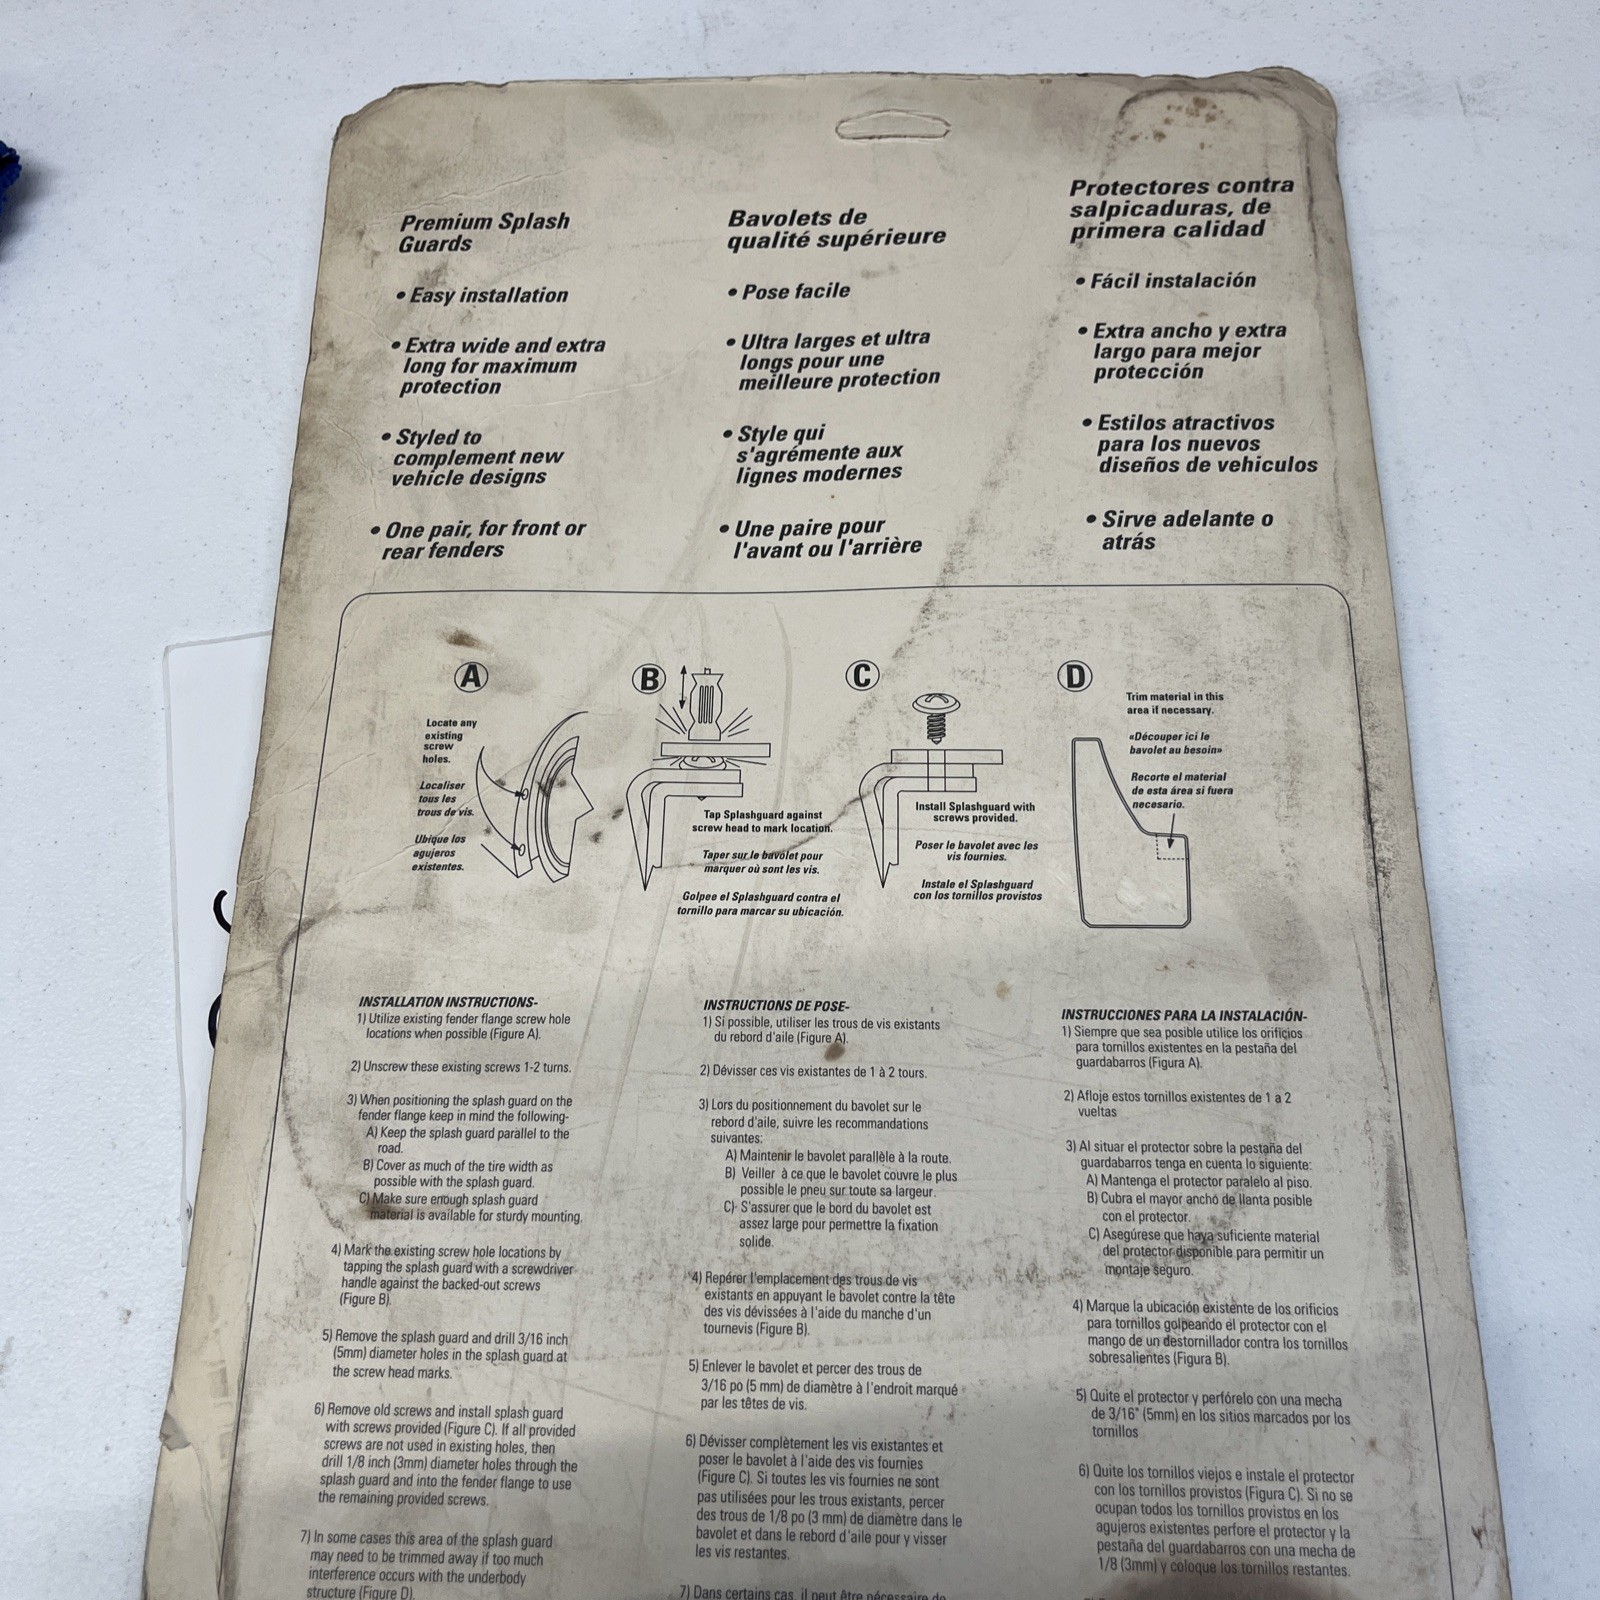 Premium Splash
Guards
• Easy installation
• Extra wide and extra
long for maximum
protection
• Styled to
complement new
vehicle designs
• One pair, for front or
rear fenders
Bavolets de
qualité supérieure
• Pose facile
• Ultra larges et ultra
longs pour une
meilleure protection
• Style qui
s'agrémente aux
lignes modernes
• Une paire pour
l'avant ou l'arrière
Protectores contra
salpicaduras, de
primera calidad
• Fácil instalación
• Extra ancho y extra
largo para mejor
protección
• Estilos atractivos
para los nuevos
diseños de vehiculos
• Sirve adelante o
atrás
A
Locate any
existing
screw
holes.
Localiser
tous les
trous de vis.
Ubique los
agujeros
existentes.
B
Tap Splashguard against
screw head to mark location.
Taper sur le bavolet pour
marquer où sont les vis.
Golpee el Splashguard contra el
tornillo para marcar su ubicación.
C
Install Splashguard with
screws provided.
Poser le bavolet avec les
vis fournies.
Instale el Splashguard
con los tornillos provistos
D
Trim material in this
area if necessary.
«Découper ici le
bavolet au besoin»
Recorte el material
de esta área si fuera
necesario.
INSTALLATION INSTRUCTIONS-
1) Utilize existing fender flange screw hole
locations when possible (Figure A).
2) Unscrew these existing screws 1-2 turns.
3) When positioning the splash guard on the
fender flange keep in mind the following-
A) Keep the splash guard parallel to the
road.
B) Cover as much of the tire width as
possible with the splash guard.
C) Make sure enough splash guard
material is available for sturdy mounting.
4) Mark the existing screw hole locations by
tapping the splash guard with a screwdriver
handle against the backed-out screws
(Figure B).
5) Remove the splash guard and drill 3/16 inch
(5mm) diameter holes in the splash guard at
the screw head marks.
6) Remove old screws and install splash guard
with screws provided (Figure C). If all provided
screws are not used in existing holes, then
drill 1/8 inch (3mm) diameter holes through the
splash guard and into the fender flange to use
the remaining provided screws.
7) In some cases this area of the splash guard
may need to be trimmed away if too much
interference occurs with the underbody
structure (Figure D).
INSTRUCTIONS DE POSE-
1) Si possible, utiliser les trous de vis existants
du rebord d'aile (Figure A).
2) Dévisser ces vis existantes de 1 à 2 tours.
3) Lors du positionnement du bavolet sur le
rebord d'aile, suivre les recommandations
suivantes:
A) Maintenir le bavolet parallèle à la route.
B) Veiller à ce que le bavolet couvre le plus
possible le pneu sur toute sa largeur.
C) S'assurer que le bord du bavolet est
assez large pour permettre la fixation
solide.
4) Repérer l'emplacement des trous de vis
existants en appuyant le bavolet contre la tête
des vis dévissées à l'aide du manche d'un
tournevis (Figure B).
5) Enlever le bavolet et percer des trous de
3/16 po (5 mm) de diamètre à l'endroit marqué
par les têtes de vis.
6) Dévisser complètement les vis existantes et
poser le bavolet à l'aide des vis fournies
(Figure C). Si toutes les vis fournies ne sont
pas utilisées pour les trous existants, percer
des trous de 1/8 po (3 mm) de diamètre dans le
bavolet et dans le rebord d'aile pour y visser
les vis restantes.
7) Dans certains cas, il peut être nécessaire de
INSTRUCCIONES PARA LA INSTALACIÓN-
1) Siempre que sea posible utilice los orificios
para tornillos existentes en la pestaña del
guardabarros (Figura A).
2) Afloje estos tornillos existentes de 1 a 2
vueltas
3) Al situar el protector sobre la pestaña del
guardabarros tenga en cuenta lo siguiente:
A) Mantenga el protector paralelo al piso.
B) Cubra el mayor ancho de llanta posible
con el protector.
C) Asegúrese que haya suficiente material
del protector disponible para permitir un
montaje seguro.
4) Marque la ubicación existente de los orificios
para tornillos golpeando el protector con el
mango de un destornillador contra los tornillos
sobresalientes (Figura B).
5) Quite el protector y perfórelo con una mecha
de 3/16" (5mm) en los sitios marcados por los
tornillos
6) Quite los tornillos viejos e instale el protector
con los tornillos provistos (Figura C). Si no se
ocupan todos los tornillos provistos en los
agujeros existentes perfore el protector y la
pestaña del guardabarros con una mecha de
1/8 (3mm) y coloque los tornillos restantes.